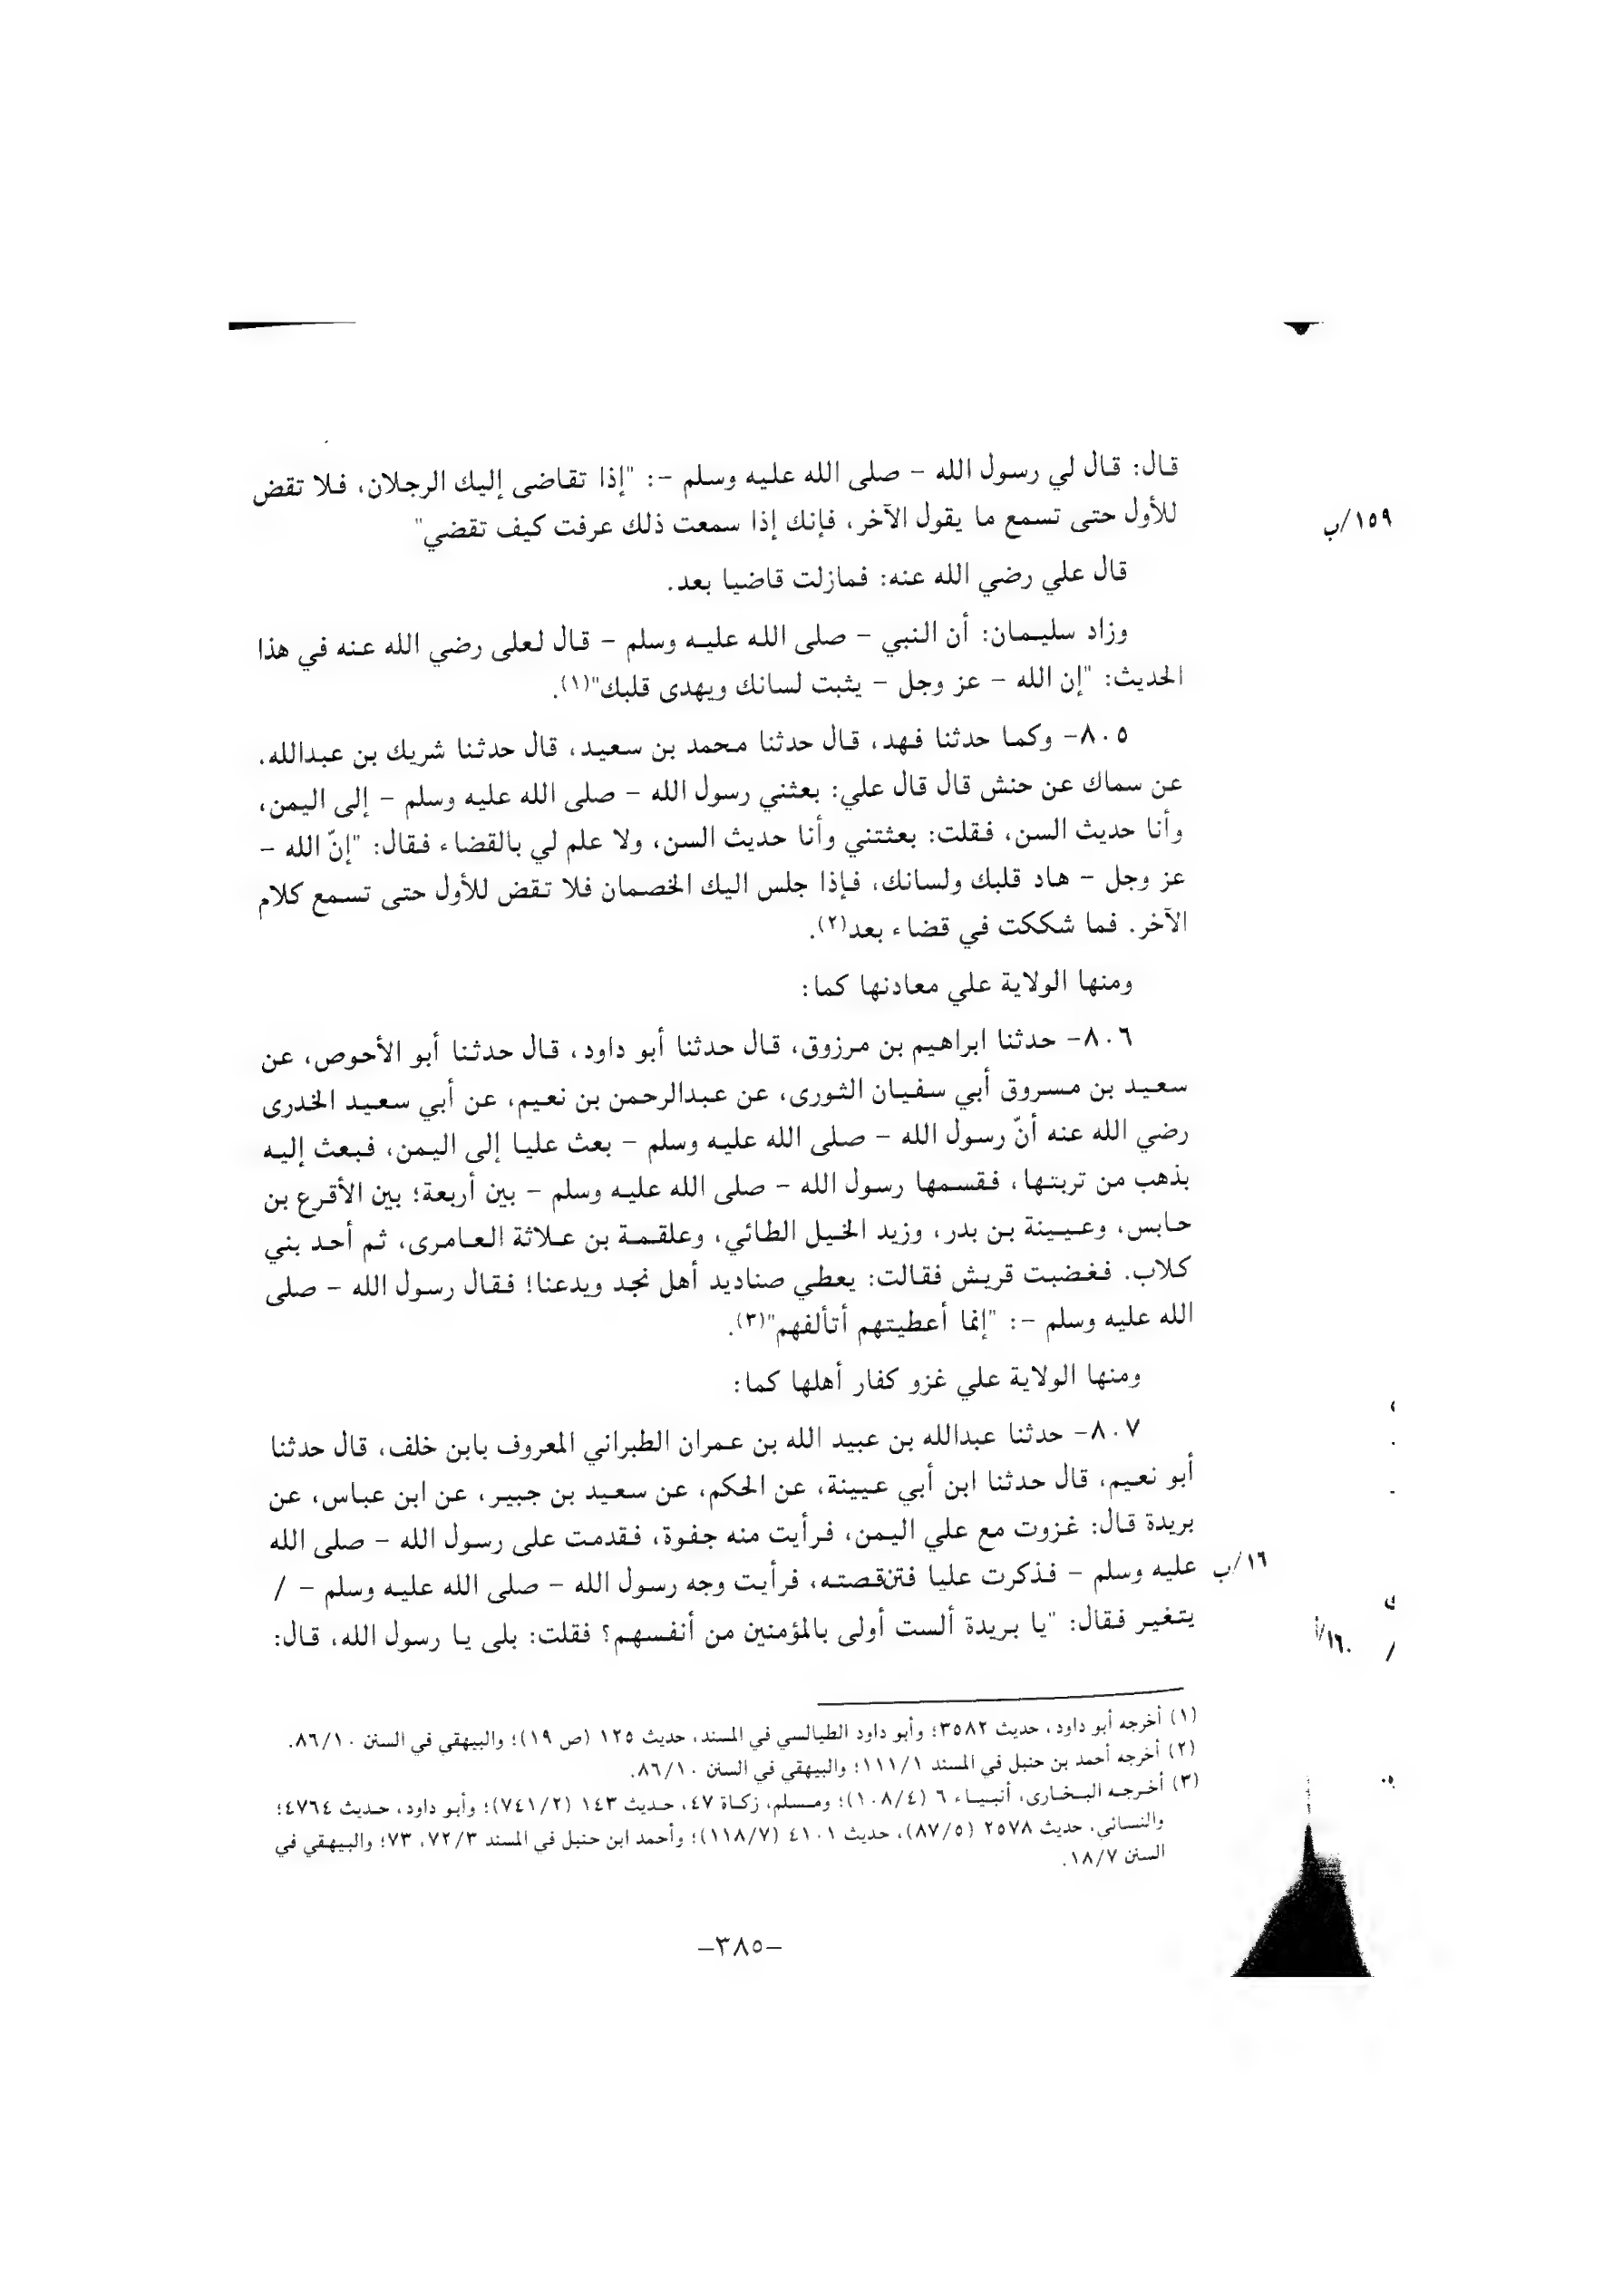 قال: قال لي رسول الله – صلى الله عليه وسلم –: "إذا تقاضى إليك الرجلان، فلا تقض
للأول حتى تسمع ما يقول الآخر، فإنك إذا سمعت ذلك عرفت كيف تقضي"
١٥٩/ب
قال علي رضي الله عنه: فمازلت قاضيا بعد.
وزاد سليمان: أن النبي – صلى الله عليه وسلم – قال لعلى رضي الله عنه في هذا
الحديث: "إن الله – عز وجل – يثبت لسانك ويهدى قلبك"(١).
٨٠٥– وكما حدثنا فهد، قال حدثنا محمد بن سعيد، قال حدثنا شريك بن عبدالله.
عن سماك عن حنش قال قال علي: بعثني رسول الله – صلى الله عليه وسلم – إلى اليمن،
وأنا حديث السن، فقلت: بعثتني وأنا حديث السن، ولا علم لي بالقضاء فقال: "إنّ الله –
عز وجل – هاد قلبك ولسانك، فإذا جلس اليك الخصمان فلا تقض للأول حتى تسمع كلام
الآخر. فما شككت في قضاء بعد(٢).
ومنها الولاية علي معادنها كما:
٨٠٦– حدثنا ابراهيم بن مرزوق، قال حدثنا أبو داود، قال حدثنا أبو الأحوص، عن
سعيد بن مسروق أبي سفيان الثورى، عن عبدالرحمن بن نعيم، عن أبي سعيد الخدرى
رضي الله عنه أنّ رسول الله – صلى الله عليه وسلم – بعث عليا إلى اليمن، فبعث إليه
بذهب من تربتها، فقسمها رسول الله – صلى الله عليه وسلم – بين أربعة؛ بين الأقرع بن
حابس، وعيينة بن بدر، وزيد الخيل الطائي، وعلقمة بن علاثة العامرى، ثم أحد بني
كلاب. فغضبت قريش فقالت: يعطي صناديد أهل نجد ويدعنا! فقال رسول الله – صلى
الله عليه وسلم –: "إنما أعطيتهم أتألفهم"(٣).
ومنها الولاية علي غزو كفار أهلها كما:
٨٠٧– حدثنا عبدالله بن عبيد الله بن عمران الطبراني المعروف بابن خلف، قال حدثنا
أبو نعيم، قال حدثنا ابن أبي عيينة، عن الحكم، عن سعيد بن جبير، عن ابن عباس، عن
بريدة قال: غزوت مع علي اليمن، فرأيت منه جفوة، فقدمت على رسول الله – صلى الله
عليه وسلم – فذكرت عليا فتنقصته، فرأيت وجه رسول الله – صلى الله عليه وسلم – /
١٦/ب
يتغير فقال: "يا بريدة ألست أولى بالمؤمنين من أنفسهم؟ فقلت: بلى يا رسول الله، قال:
١٦٠/أ
(١) أخرجه أبو داود، حديث ٣٥٨٢؛ وأبو داود الطيالسي في المسند، حديث ١٢٥ (ص ١٩)؛ والبيهقي في السنن ٨٦/١٠.
(٢) أخرجه أحمد بن حنبل في المسند ١١١/١؛ والبيهقي في السنن ٨٦/١٠.
(٣) أخرجه البخارى، أنبياء ٦ (١٠٨/٤)؛ ومسلم، زكاة ٤٧، حديث ١٤٣ (٧٤١/٢)؛ وأبو داود، حديث ٤٧٦٤؛
والنسائي، حديث ٢٥٧٨ (٨٧/٥)، حديث ٤١٠١ (١١٨/٧)؛ وأحمد ابن حنبل في المسند ٧٢/٣، ٧٣؛ والبيهقي في
السنن ١٨/٧.
–٣٨٥–